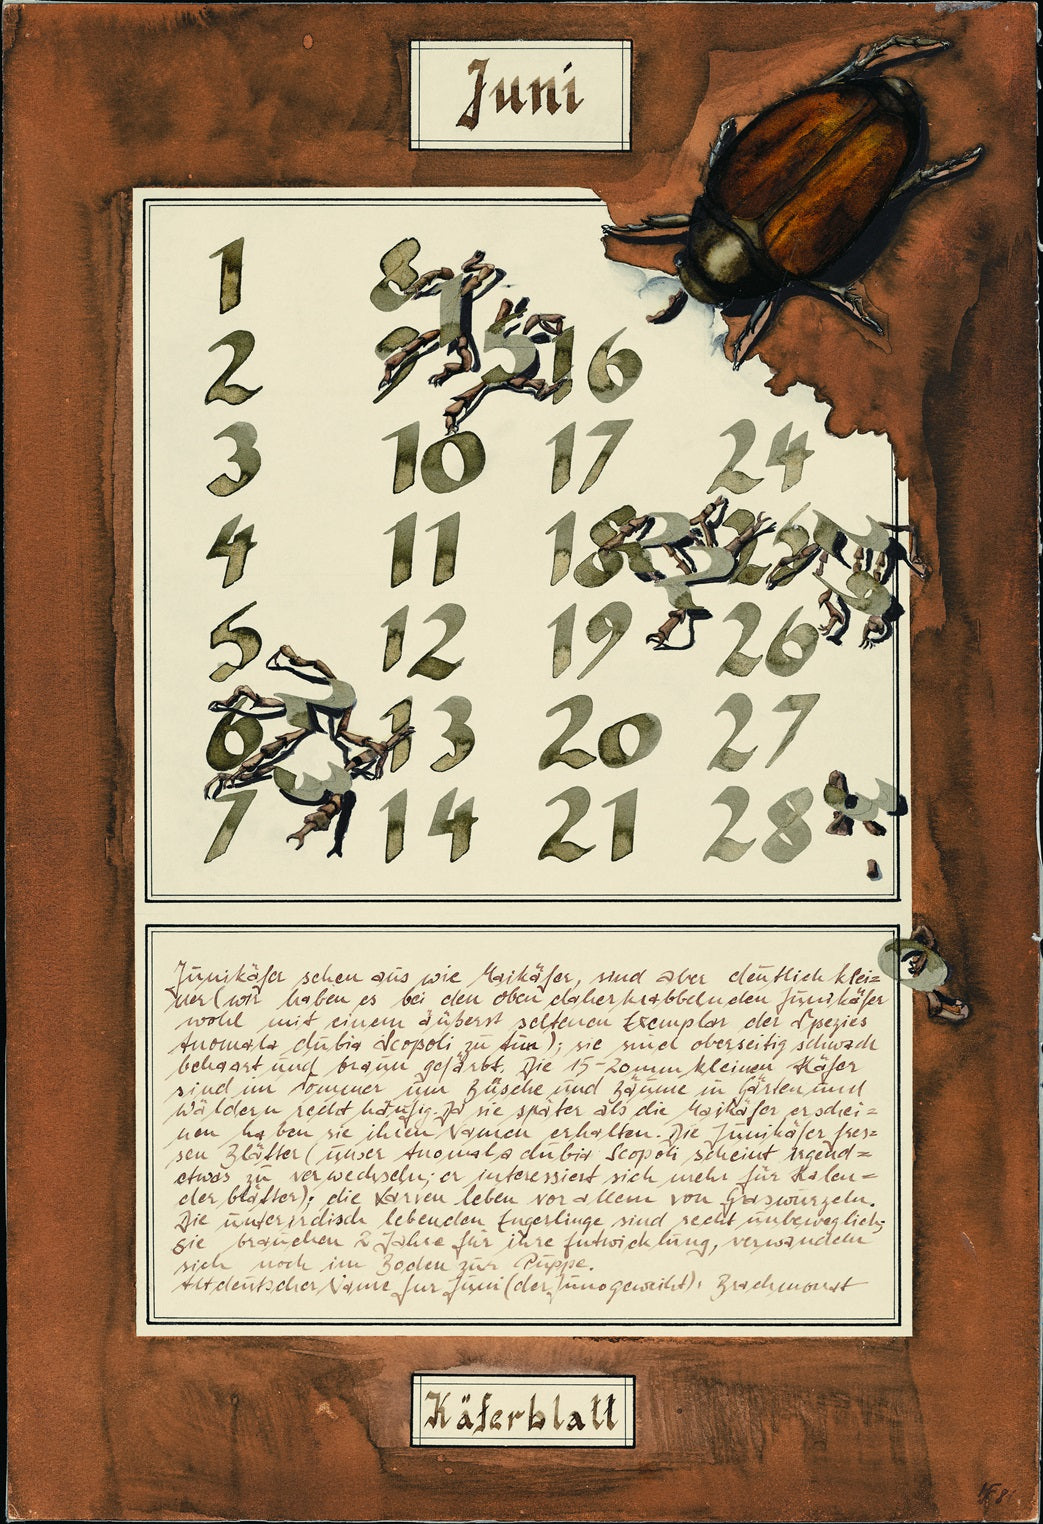 Juni
1
2
3
4
5
6
7
8
9
10
11
12
13
14
15
16
17
18
19
20
21
24
25
26
27
28
30
Junikäfer sehen aus wie Maikäfer, sind aber deutlich klei=
ner (wir haben es bei den oben daherkrabbelnden Junikäfer
wohl mit einem äußerst seltenen Exemplar der Spezies
Anomala dubia Scopoli zu tun); sie sind oberseitig schwach
behaart und braun gefärbt. Die 15-20mm kleinen Käfer
sind im Sommer um Büsche und Bäume in Gärten und
Wäldern recht häufig. Da sie später als die Maikäfer erschei=
nen haben sie ihren Namen erhalten. Die Junikäfer fres=
sen Blätter (unser Anomala dubia Scopoli scheint irgend=
etwas zu verwechseln; er interessiert sich mehr für Kalen=
derblätter); die Larven leben vor allem von Graswurzeln.
Die unterirdisch lebenden Engerlinge sind recht unbeweglich;
sie brauchen 2 Jahre für ihre Entwicklung, verwandeln
sich noch im Boden zur Puppe.
Altdeutscher Name für Juni (der Juno geweiht): Brachmonat
Käferblatt